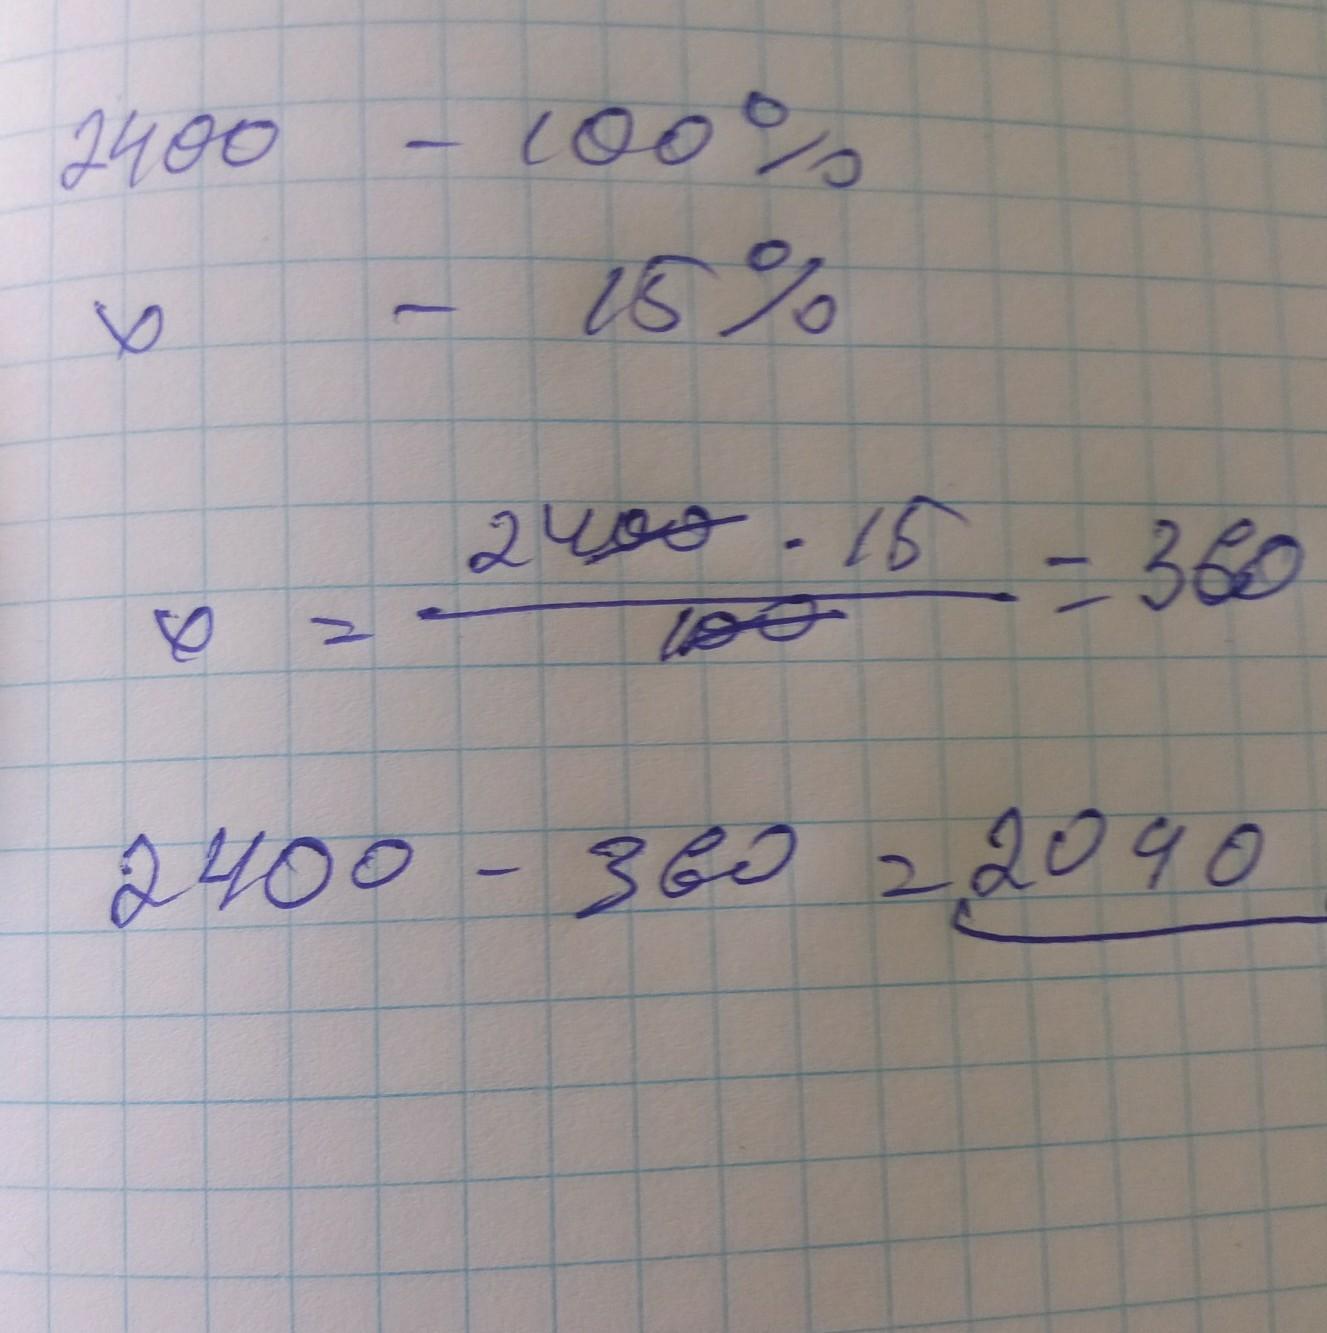 2400 - 100%
x - 15%
x = 2400 · 15 / 100 = 360
2400 - 360 = 2040